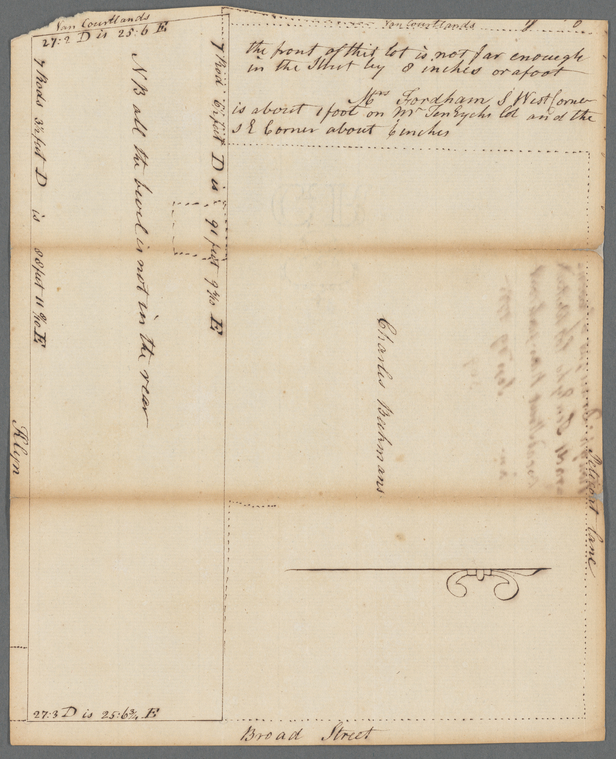 Van Courtlands
Van Courtlands
27:2 D is 25:6 E
the front of this lot is not far enough
in the Street by 8 inches or a foot
Mrs Fordham S West Corner
is about 1 foot on Mr TenEycks lot and the
S E Corner about 6 inches
7 Rods 3½ feet D is 88 feet 11 E
NB all the bevel is not in the rear
7 Rods 6½ feet D is 91 feet 9 E
Charles Beekmans
Klyn
Petticoat lane
27:3 D is 25:6¾ E
Broad Street